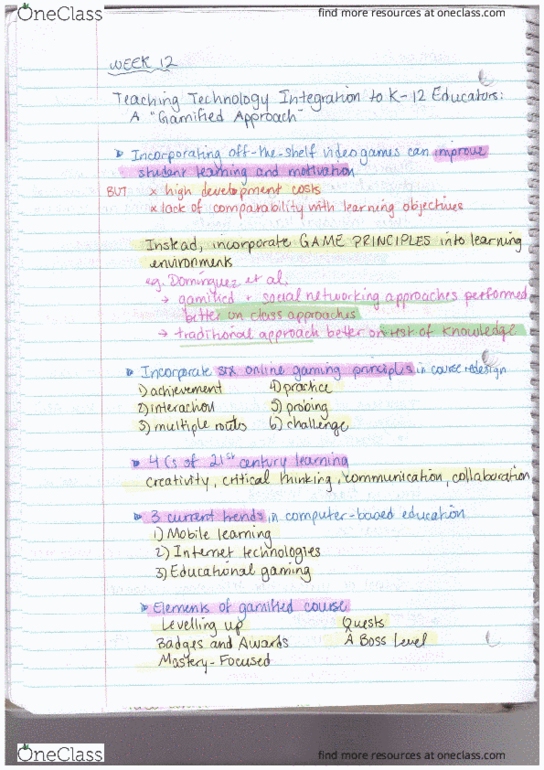 OneClass
find more resources at oneclass.com
WEEK 12
Teaching Technology Integration to K-12 Educators:
A "Gamified Approach"
Incorporating off-the-shelf videogames can improve
student learning and motivation
BUT: x high development costs
x lack of comparability with learning objectives
Instead, incorporate GAME PRINCIPLES into learning
environments
e.g. Domínguez et al.
→ gamified + social networking approaches performed
better on class approaches
→ traditional approach better on test of knowledge
Incorporate six online gaming principles in course redesign
1) achievement 4) practice
2) interaction 5) probing
3) multiple routes 6) challenge
4 Cs of 21st century learning
creativity, critical thinking, communication, collaboration
3 current trends in computer-based education
1) Mobile learning
2) Internet technologies
3) Educational gaming
Elements of gamified course
Levelling up Quests
Badges and Awards A Boss Level
Mastery-Focused
OneClass
find more resources at oneclass.com